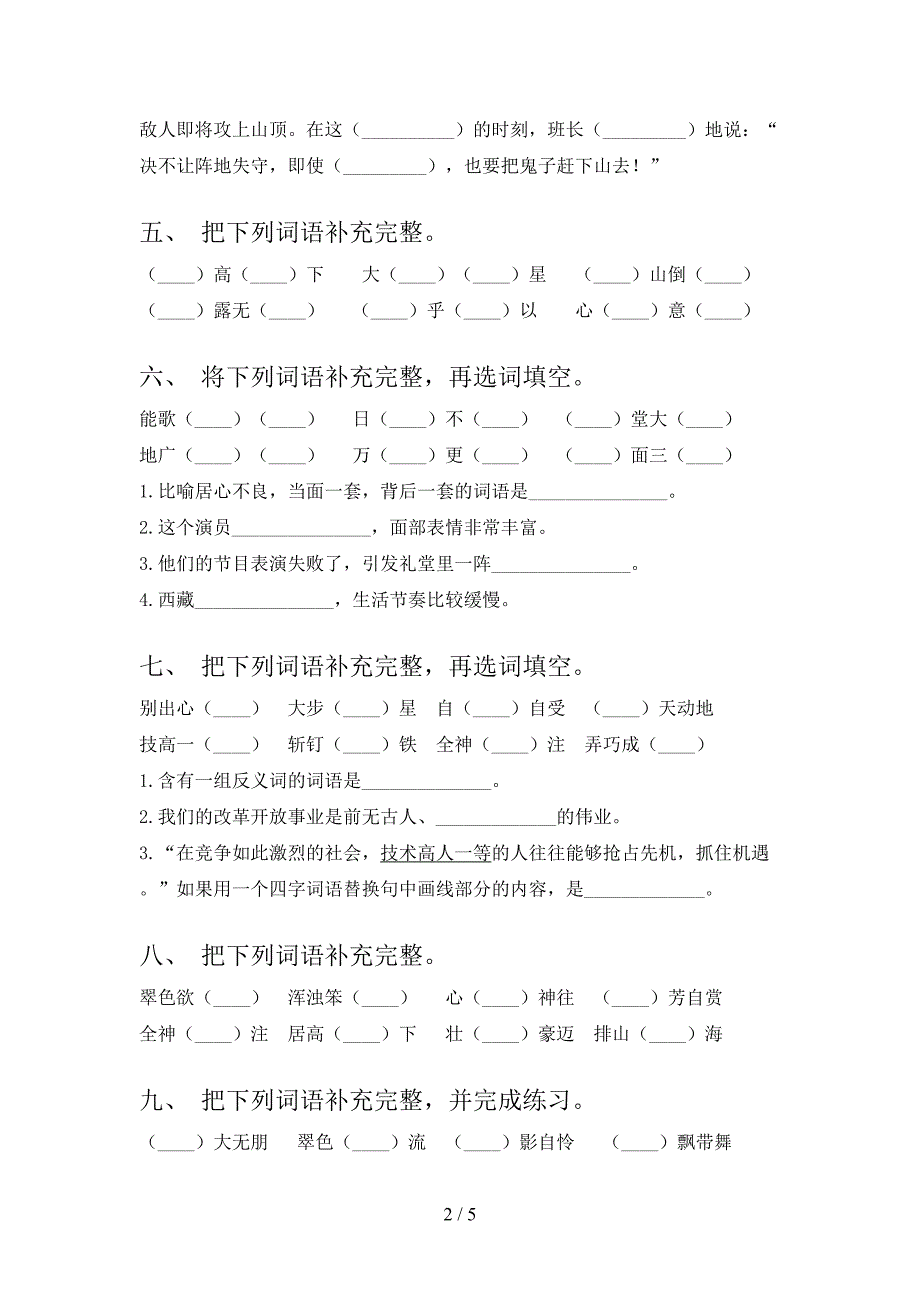 敌人即将攻上山顶。在这（__________）的时刻，班长（_________）地说：“
决不让阵地失守，即使（_________），也要把鬼子赶下山去！”
五、 把下列词语补充完整。
（____）高（____）下 大（____）（____）星 （____）山倒（____）
（____）露无（____） （____）乎（____）以 心（____）意（____）
六、 将下列词语补充完整，再选词填空。
能歌（____）（____） 日（____）不（____） （____）堂大（____）
地广（____）（____） 万（____）更（____） （____）面三（____）
1.比喻居心不良，当面一套，背后一套的词语是_______________。
2.这个演员_______________，面部表情非常丰富。
3.他们的节目表演失败了，引发礼堂里一阵_______________。
4.西藏_______________，生活节奏比较缓慢。
七、 把下列词语补充完整，再选词填空。
别出心（____） 大步（____）星 自（____）自受 （____）天动地
技高一（____） 斩钉（____）铁 全神（____）注 弄巧成（____）
1.含有一组反义词的词语是______________。
2.我们的改革开放事业是前无古人、_____________的伟业。
3.“在竞争如此激烈的社会，技术高人一等的人往往能够抢占先机，抓住机遇
。”如果用一个四字词语替换句中画线部分的内容，是_____________。
八、 把下列词语补充完整。
翠色欲（____） 浑浊笨（____） 心（____）神往 （____）芳自赏
全神（____）注 居高（____）下 壮（____）豪迈 排山（____）海
九、 把下列词语补充完整，并完成练习。
（____）大无朋 翠色（____）流 （____）影自怜 （____）飘带舞
2 / 5